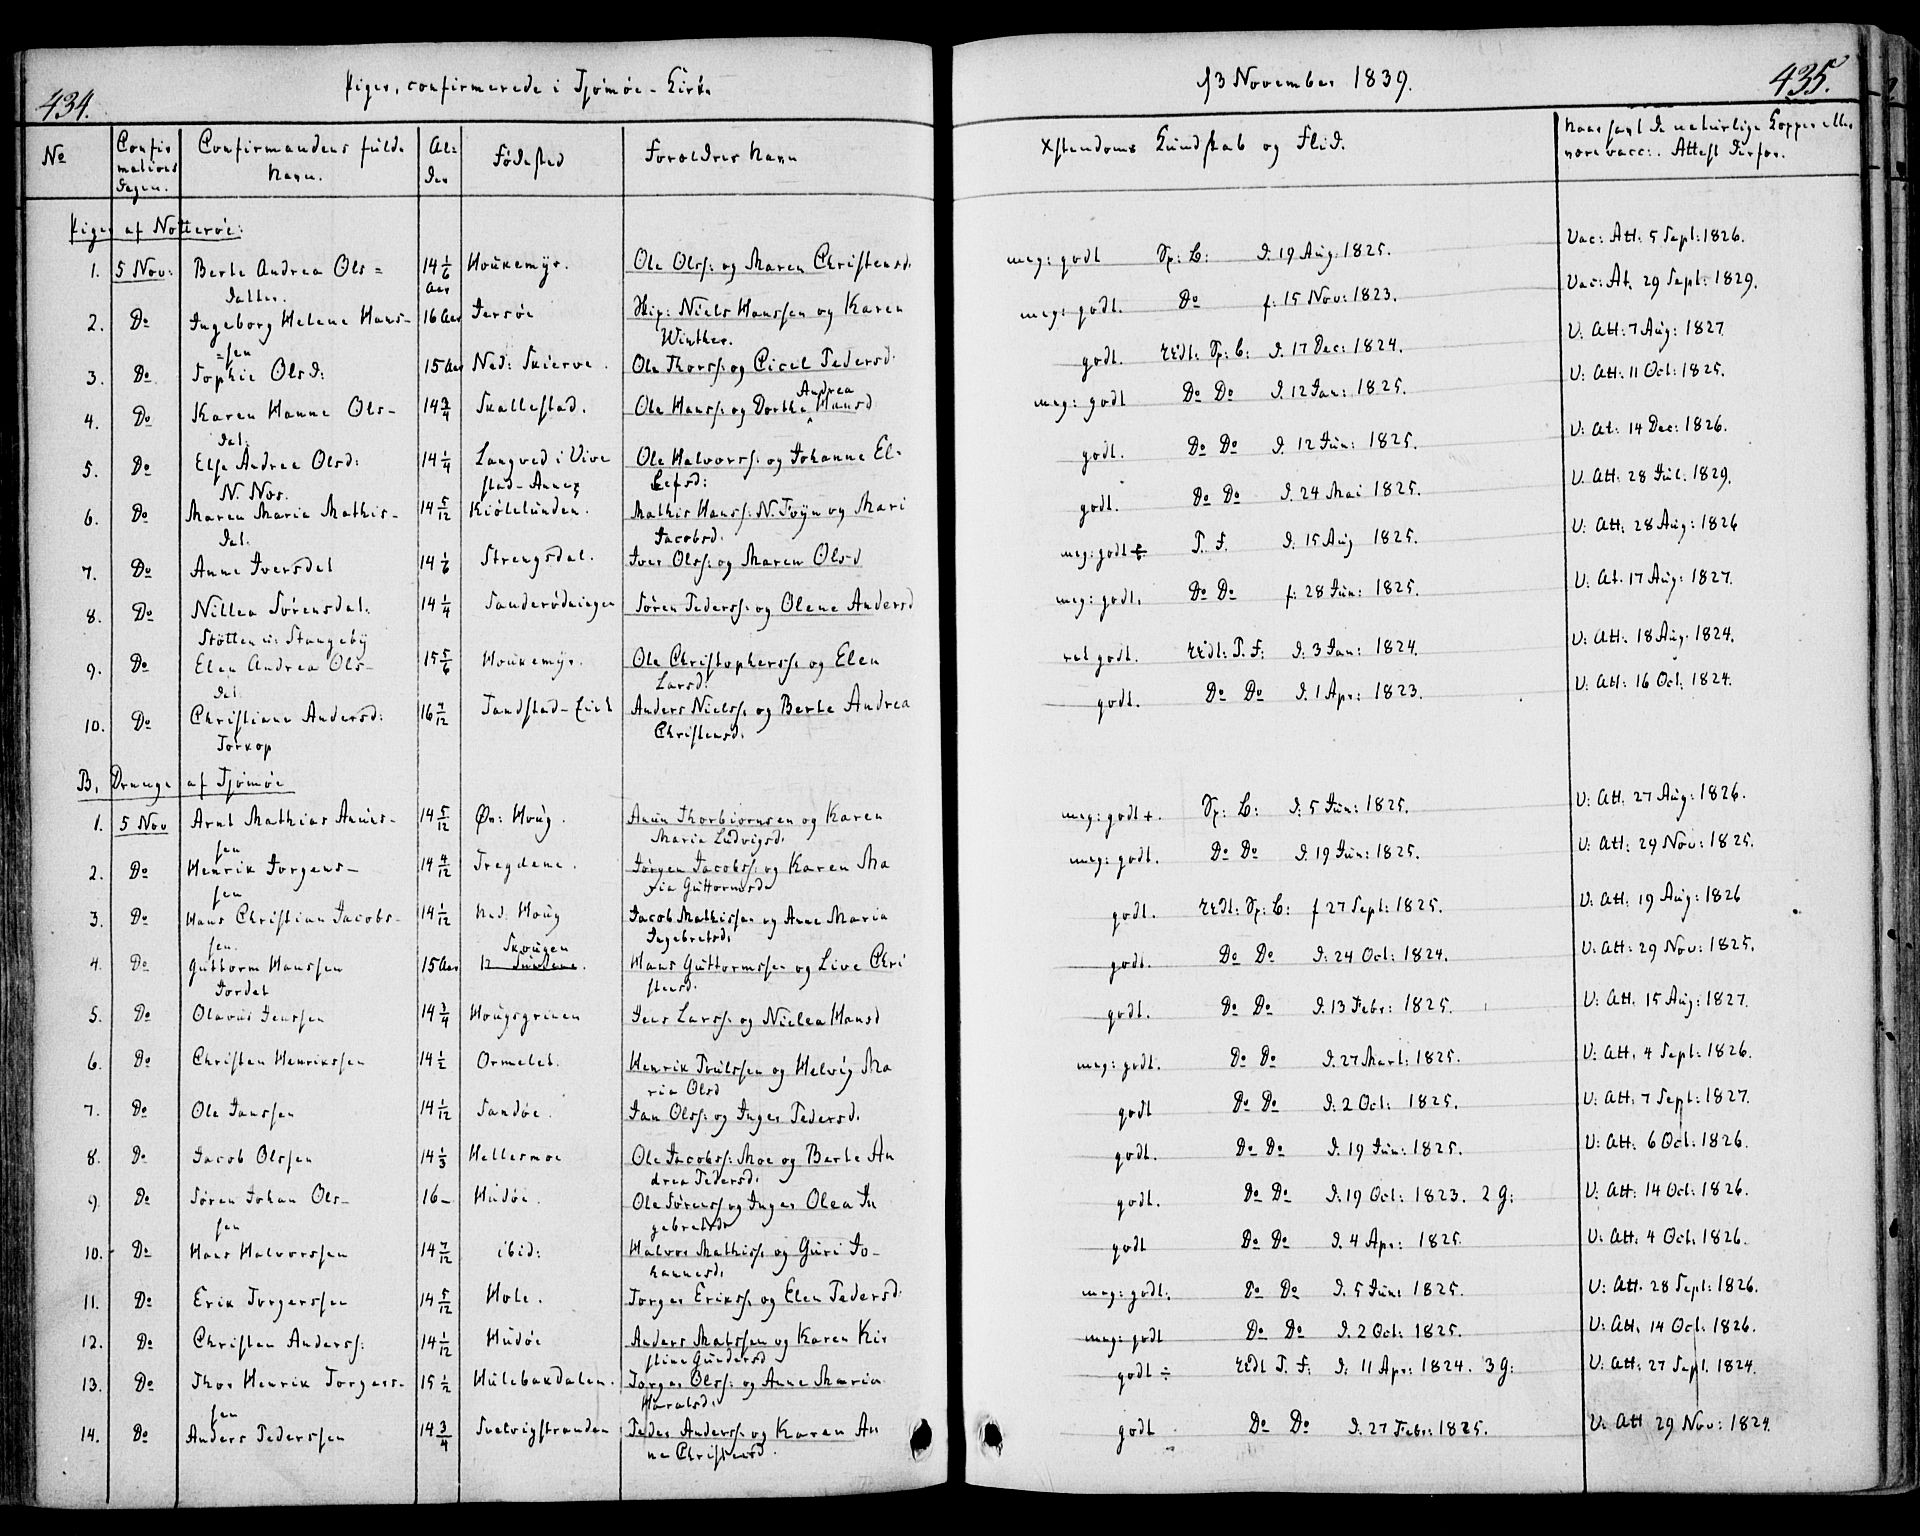 434. Piger, confirmerede i Tjømøe-Kirke
No
Confir
mations
Dagen.
Confirmandens fulde
Navn.
Al-
der
Fødested
Forældres Navn
Piger af Nøtterøe:
1. 5 Nov: Berte Andrea Ols= 14 1/6 Houkemyr. Ole Olss: og Maren Christensd.
datter. Aar
2. Do Ingeborg Helene Hans- 16 Aar Jersøe Skip: Niels Hanssen og Karen
=sen Winther.
3. Do Sophie Olsd: 15 Aar Ned: Skierve. Ole Thorss: og Cicel Pedersd.
Andrea
4. Do Karen Hanne Ols- 14 3/4 Skallestad. Ole Hanss: og Dorthe Hansd
dat.
5. Do Else Andrea Olsd: 14 1/4 Langved i Vive Ole Halvorss: og Johanne El-
N. Nos. stad-Annex lefsd:
6. Do Maren Marie Mathis- 14 5/12 Kiølelunden. Mathis Hanss: N. Foyn og Mari
dat. Jacobsd.
7. Do Anne Iversdat 14 1/6 Strengsdal. Iver Olss: og Maren Olsd
8. Do Nillea Sørensdat. 14 1/4 Sanderødningen Søren Pederss: og Olene Andersd
Støtten u: Stangeby
9. Do Elen Andrea Ols- 15 5/6 Houkemyr. Ole Christopherss. og Elen
dat. Larsd:
10. Do Christiane Andersd: 16 7/12 Sandstad-Eiet Anders Nielss. og Berte Andrea
Torkop Christensd.
B. Drenge af Tjømøe
1. 5 Nov Arnt Mathias Anuns- 14 5/12 Øv: Houg. Anun Thorbiørnsen og Karen
sen Maria Ludvigsd.
2. Do Henrik Jørgens- 14 4/12 Tregdene. Jørgen Jacobss: og Karen Ma
sen ria Guttormsd
3. Do Hans Christian Jacobs- 14 1/12 Ned. Houg Jacob Mathissen og Anne Maria
sen. Skougen Ingebretsd.
4. Do Guttorm Hanssen 15 Aar Hans Guttormssen og Live Chri
Jordet stensd.
5. Do Olavus Jenssen 14 3/4 Hougsgrinen Jens Larss. og Nielea Hansd
6. Do Christen Henrikssen 14 1/2 Ormelet. Henrik Truelssen og Helvig Ma
ria Olsd
7. Do Ole Janssen 14 1/12 Sandøe. Jan Olss: og Inger Pedersd.
8. Do Jacob Olssen 14 1/3 Hellesmoe Ole Jacobss: Moe og Berte An
drea Pedersd.
9. Do Søren Johan Ols- 16 - Hudøe. Ole Sørenss og Inger Olea In
sen gebretsd
10. Do Hans Halvorssen 14 7/12 ibid: Halvor Mathiss. og Guri Jo-
hannesd.
11. Do Erik Torgerssen 14 5/12 Hole. Torger Erikss. og Elen Pedersd.
12. Do Christen Anderss: 14 1/12 Hudøe Anders Matssen og Karen Kir
stine Gundersd
13. Do Thor Henrik Torgers- 15 1/2 Hulebakdalen. Torger Olss: og Anne Maria
sen Haralsd.
14. Do Anders Pederssen 14 3/4 Svelvigstranden Peder Anderss: og Karen An
ne Christensd.
13 November 1839. 435.
Xstendoms Kundskab og Flid.
Naar havt de naturlige Kopper eller
være vacc:. Attest derfor.
meg: godt Sp: L: d. 19 Aug. 1825. Vac: Att: 5 Sept: 1826.
meg: godt. Do f: 15 Nov: 1823. Vac: At. 29 Sept: 1829.
godt. Sp: L: d. 17 Dec: 1824. V: Att: 7 Aug: 1827
meg: godt Do Do d. 12 Jan: 1825. V: Att: 11 Oct: 1825.
godt. Do Do d. 12 Jun: 1825. V: At: 14 Dec: 1826.
godt. Do Do d. 24 Mai 1825. V: Att: 28 Jul. 1829.
meg: godt ÷ T. F. d. 15 Aug 1825. V: Att: 28 Aug: 1826
meg: godt. Do Do f: 28 Jun: 1825. V: At. 17 Aug: 1827.
ret godt. T. F: d: 3 Jan: 1824. V: Att: 18 Aug. 1824.
godt. Do Do d. 1 Apr: 1823. V: Att: 16 Oct. 1824.
meg: godt +. Sp: L: d: 5 Jun: 1825. V: Att. 27 Aug: 1826.
meg: godt. Do Do d. 19 Jun: 1825. V: Att: 29 Nov: 1825.
godt. Sp: L: f 27 Sept: 1825. V: Att: 19 Aug: 1826
godt. Do Do d: 24 Oct: 1824. V: Att: 29 Nov: 1825.
godt. Do Do d. 13 Febr: 1825. V: Att. 15 Aug: 1827.
meg: godt. Do Do d. 27 Mart: 1825. V: Att. 4 Sept: 1826.
godt Do Do d: 2 Oct: 1825. V: Att: 7 Sept: 1827.
godt. Do Do d. 19 Jun: 1825. V: Att: 6 Oct: 1826.
godt. Do Do d. 19 Oct: 1823. 2 G: V: Att: 14 Oct: 1826.
godt Do Do d. 4 Apr: 1825. V: Att: 4 Oct. 1826.
meg: godt. Do Do d. 5 Jun: 1825. V: Att. 28 Sept: 1826.
meg: godt Do Do d. 2 Oct: 1825. V: Att. 14 Oct. 1826.
godt ÷ T. F: d: 11 Apr: 1824. 3 G: V: Att: 27 Sept. 1824.
godt Do Do d. 27 Febr: 1825. V: Att 29 Nov: 1824.